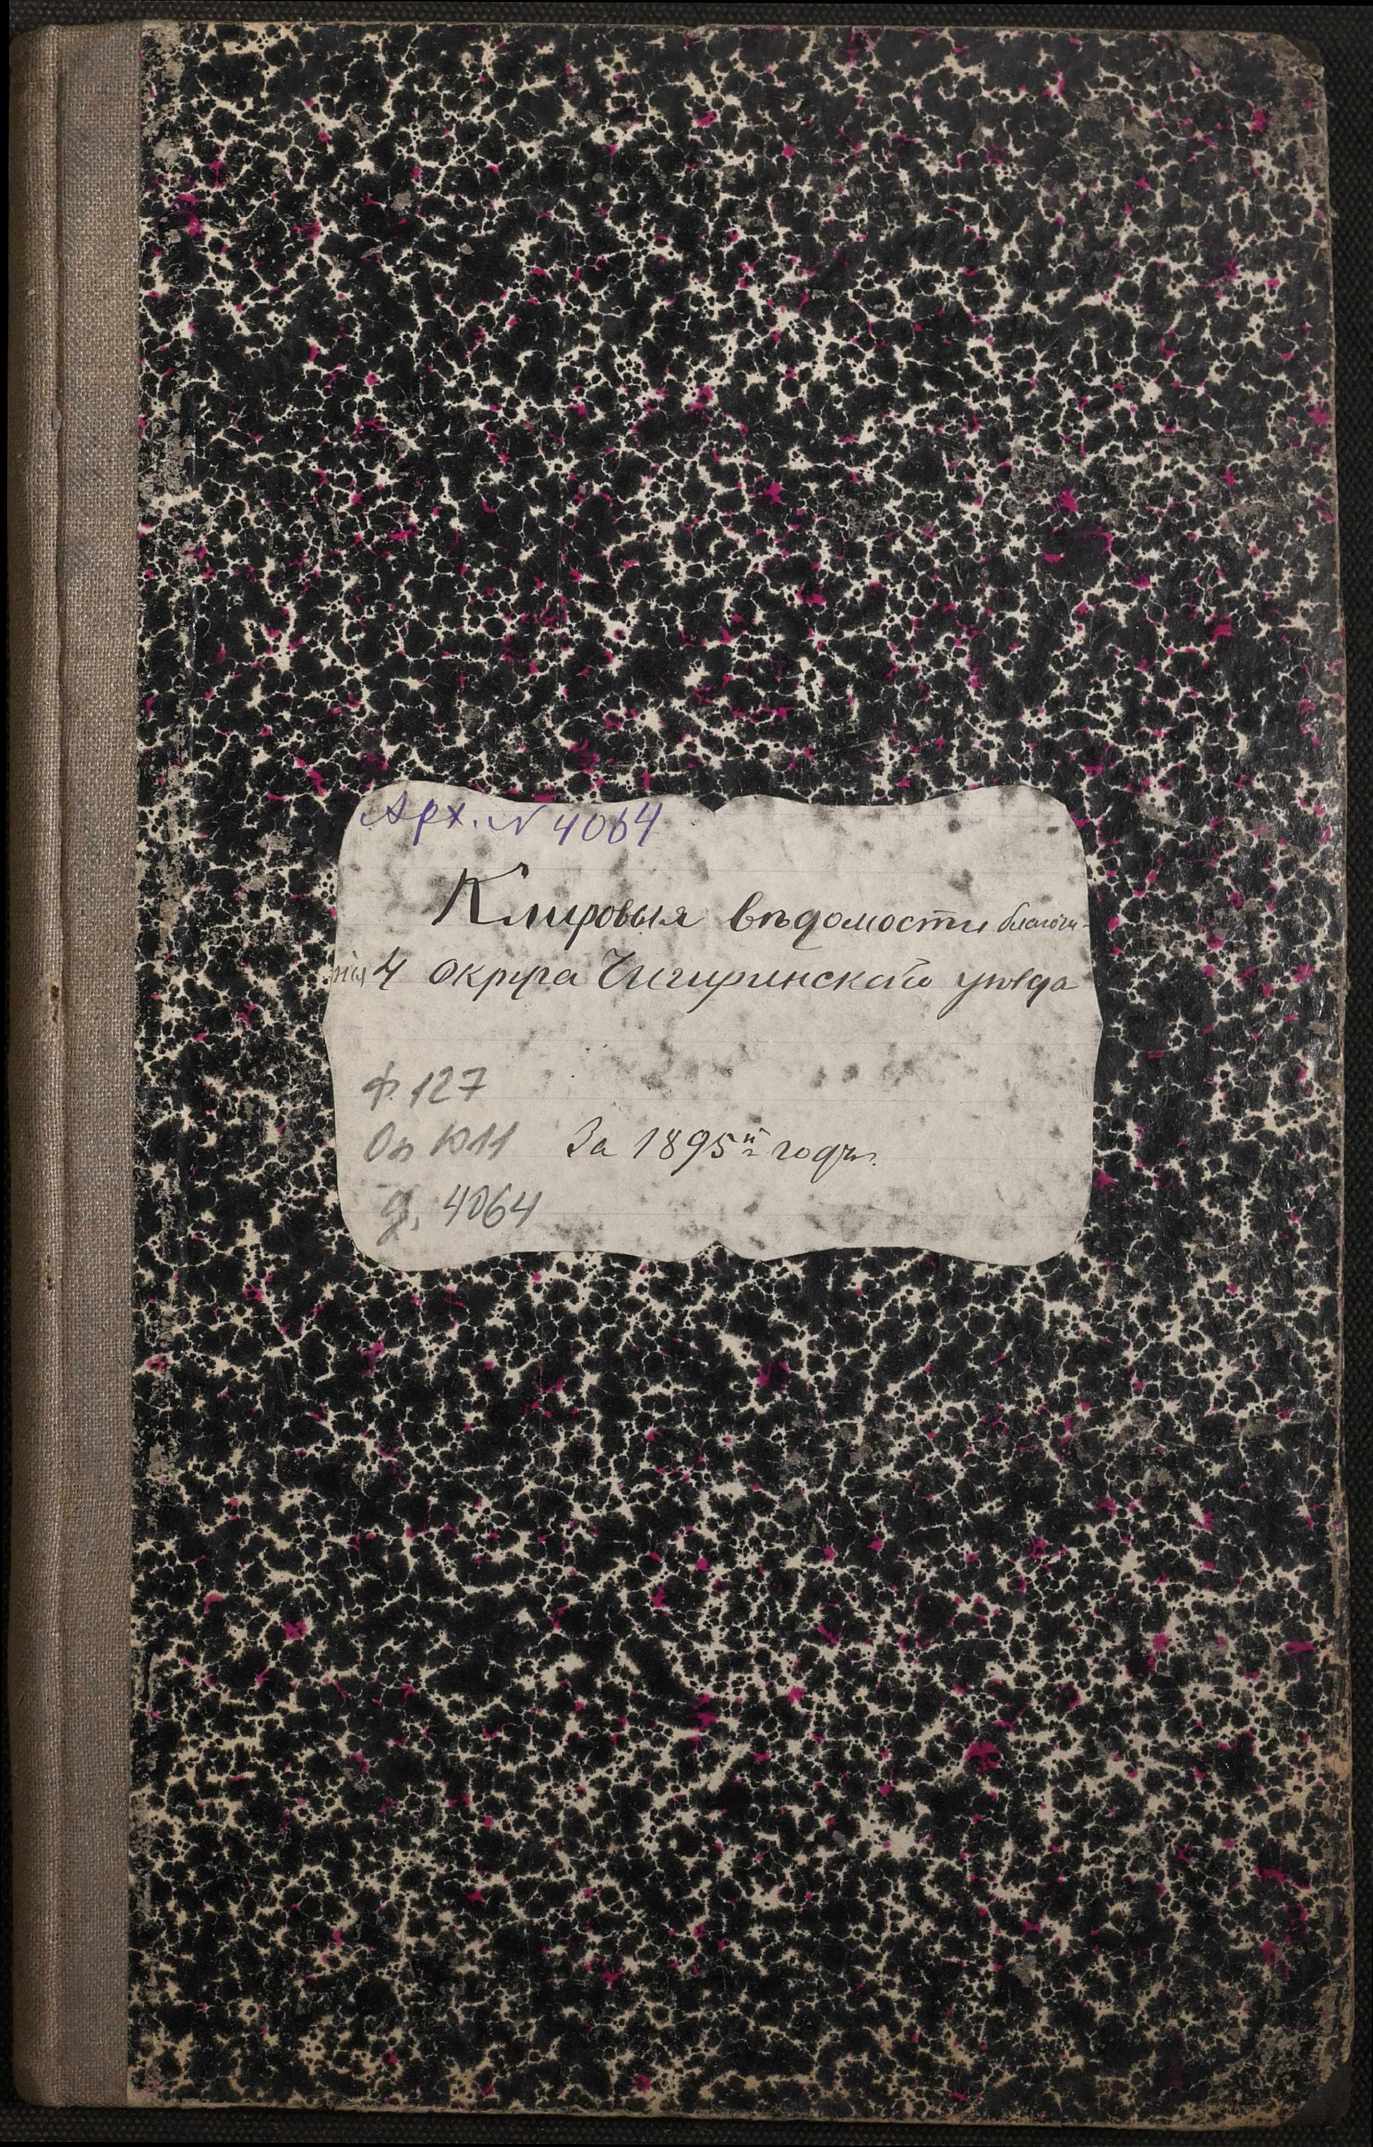 Арх. № 4064
Клировыя вѣдомости благочи-
нія 4 округа Чигиринскаго уѣзда
Ф. 127
Оп 1011 За 1895й годъ.
д. 4064